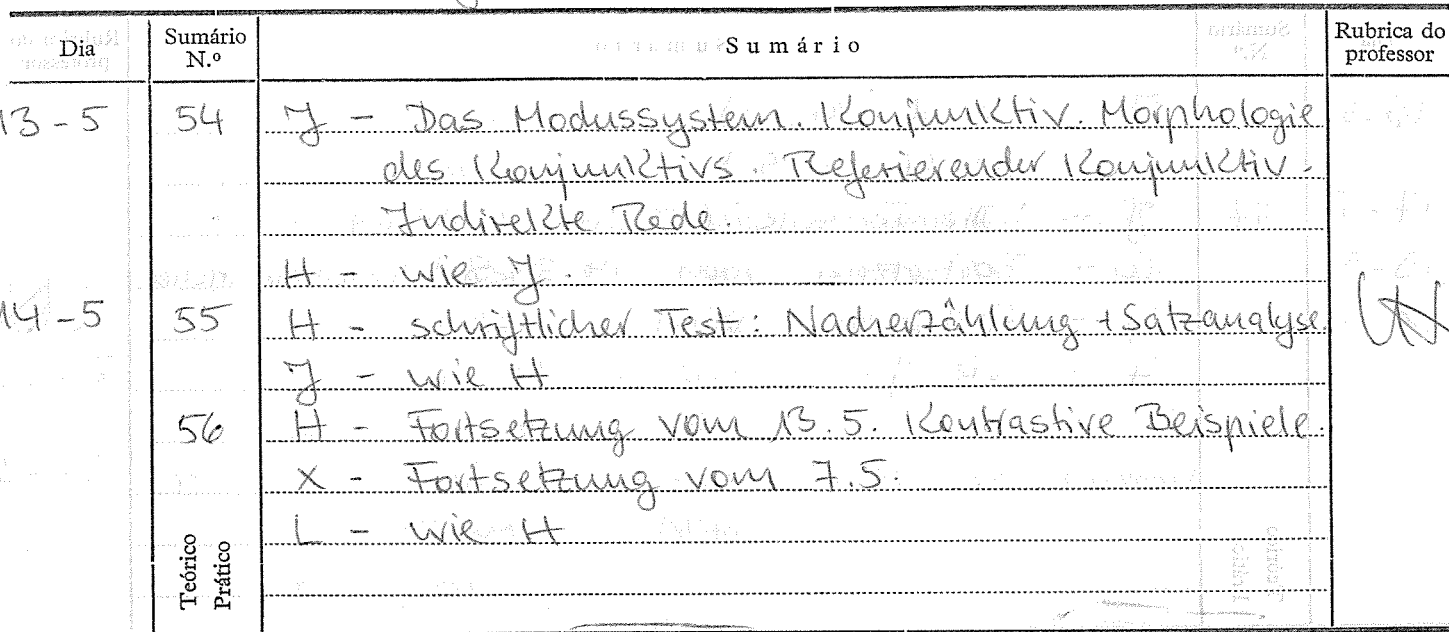 Dia Sumário N.º Sumário Rubrica do professor
13-5 54 J - Das Modussystem. Konjunktiv. Morphologie
des Konjunktivs. Referierender Konjunktiv.
Indirekte Rede.
H - wie J.
14-5 55 H - schriftlicher Test: Nacherzählung + Satzanalyse.
J - wie H
56 H - Fortsetzung vom 13.5. Kontrastive Beispiele.
X - Fortsetzung vom 7.5.
L - wie H
Teórico
Prático